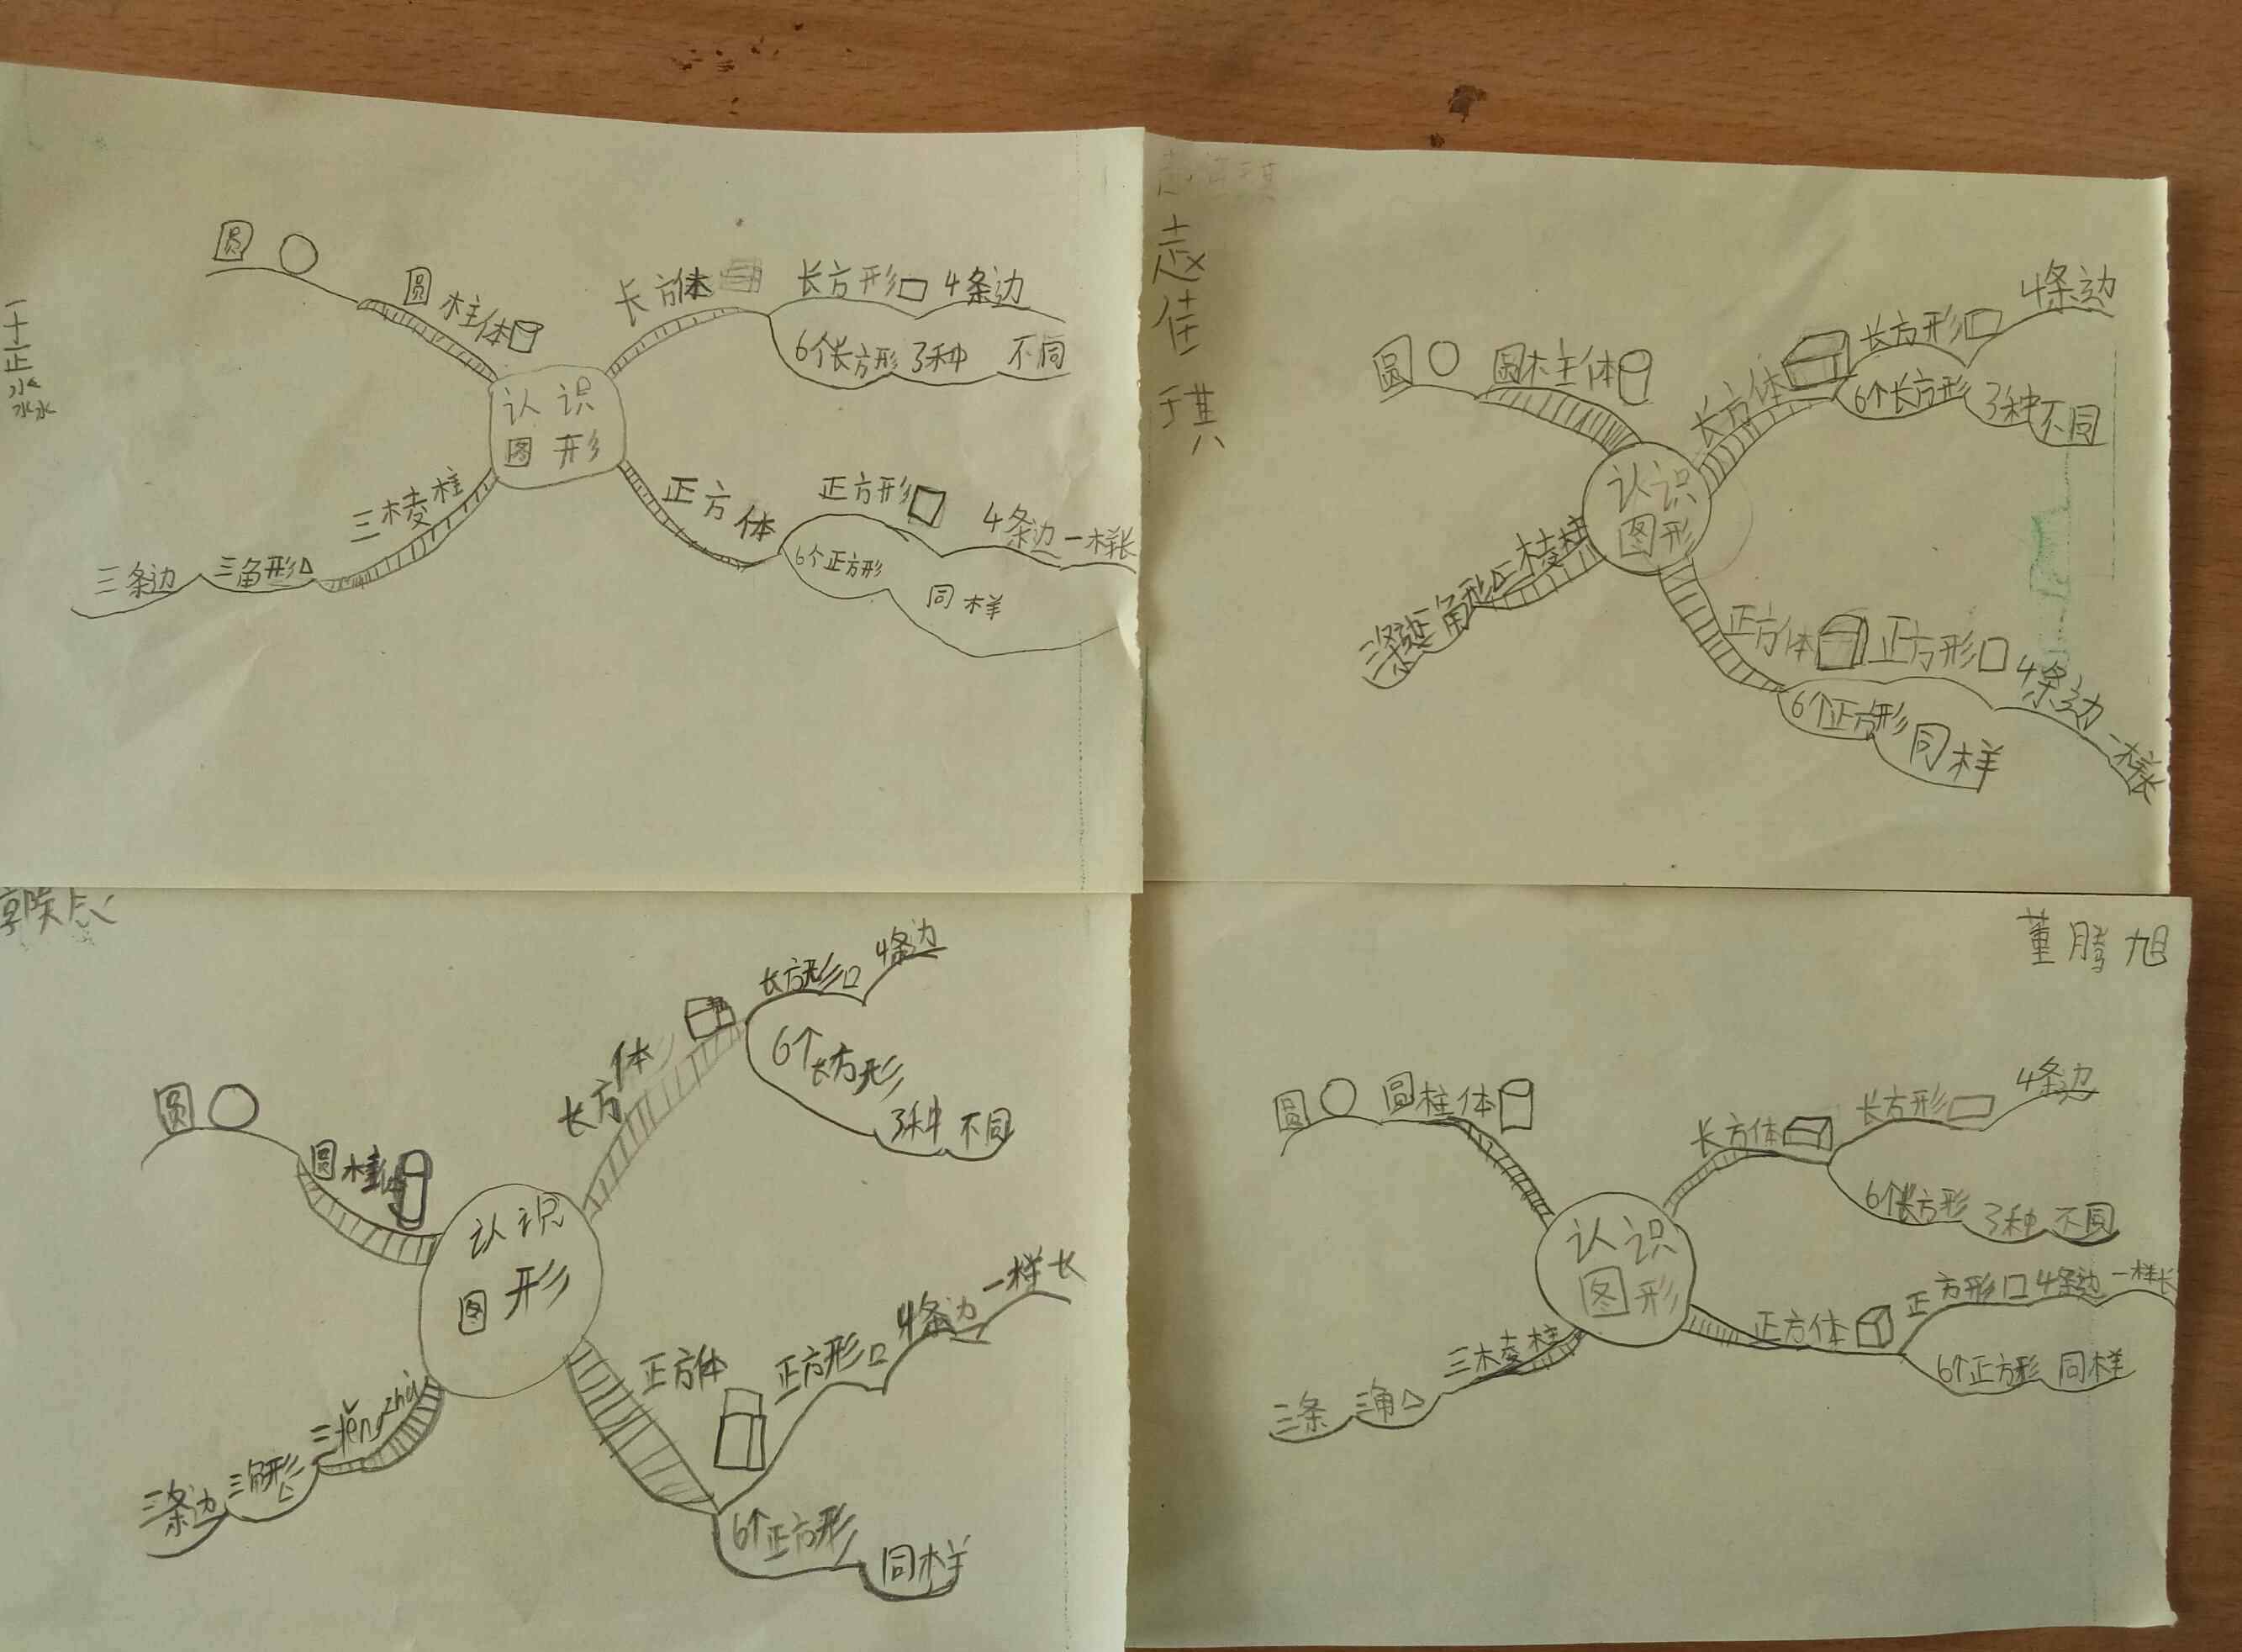 圆
圆柱体
长方体
长方形 4条边
6个长方形 3种 不同
认识
图形
三棱柱
三角形
三条边
正方体
正方形
4条边一样长
6个正方形
同样
佳
琪
圆
圆柱体
长方体
长方形
4条边
6个长方形
3种不同
认识
图形
三棱柱
三角形
三条边
正方体
正方形
4条边
一样长
6个正方形
同样
圆
圆柱体
长方体
长方形
4条边
6个
长方形
3种 不同
认识
图形
三lěng zhù
三角形
三条边
正方体
正方形
4条边
一样长
6个正方形
同样
董腾旭
圆
圆柱体
长方体
长方形
4条边
6个长方形
3种 不同
认识
图形
三棱柱
三角
三条
正方体
正方形 4条边 一样长
6个正方形 同样